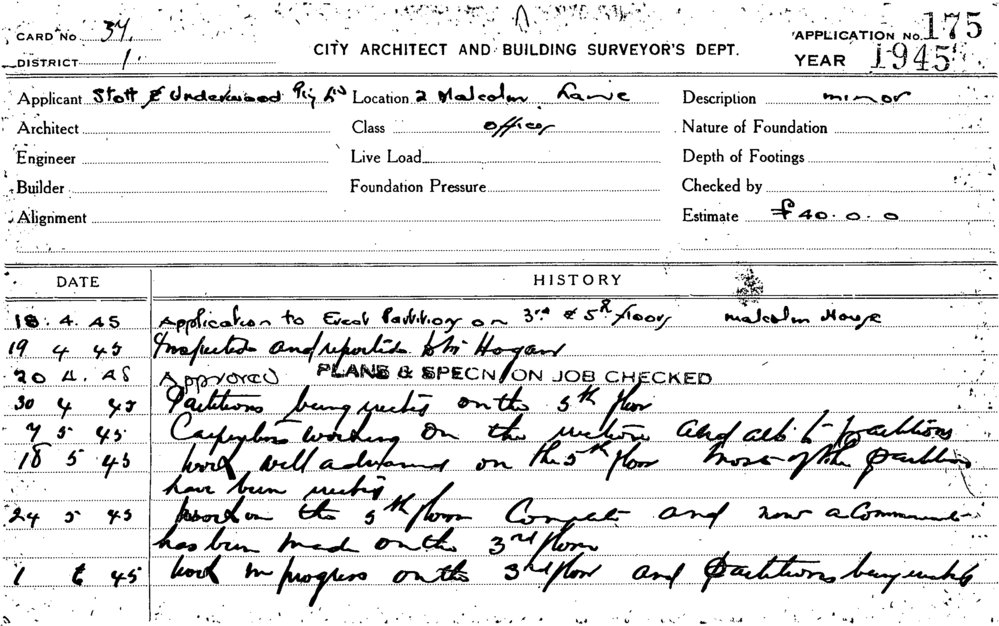 CARD No 34. CITY ARCHITECT AND BUILDING SURVEYOR'S DEPT. APPLICATION No. 175
DISTRICT 1. YEAR 1945
Applicant Stott & Underwood Pty Ltd Location 2 Malcolm Lane Description minor
Architect Class offices Nature of Foundation
Engineer Live Load Depth of Footings
Builder Foundation Pressure Checked by
Alignment Estimate £40.0.0
DATE HISTORY
18.4.45 Application to Erect Partition on 3rd & 5th floors malcolm House
19 4 45 Inspected and reported to Mr Hogan
20 4.45 Approved PLANS & SPECN ON JOB CHECKED
30 4 45 Partitions being erected on the 5th floor
7 5 45 Carpenters working on the erection and alts to partitions
18 5 45 work well advanced on the 5th floor most of the partitions
have been erected
24 5 45 work on the 5th floor Complete and now a Commence-
has been made on the 3rd floor
1 6 45 work in progress on the 3rd floor and Partitions being erected